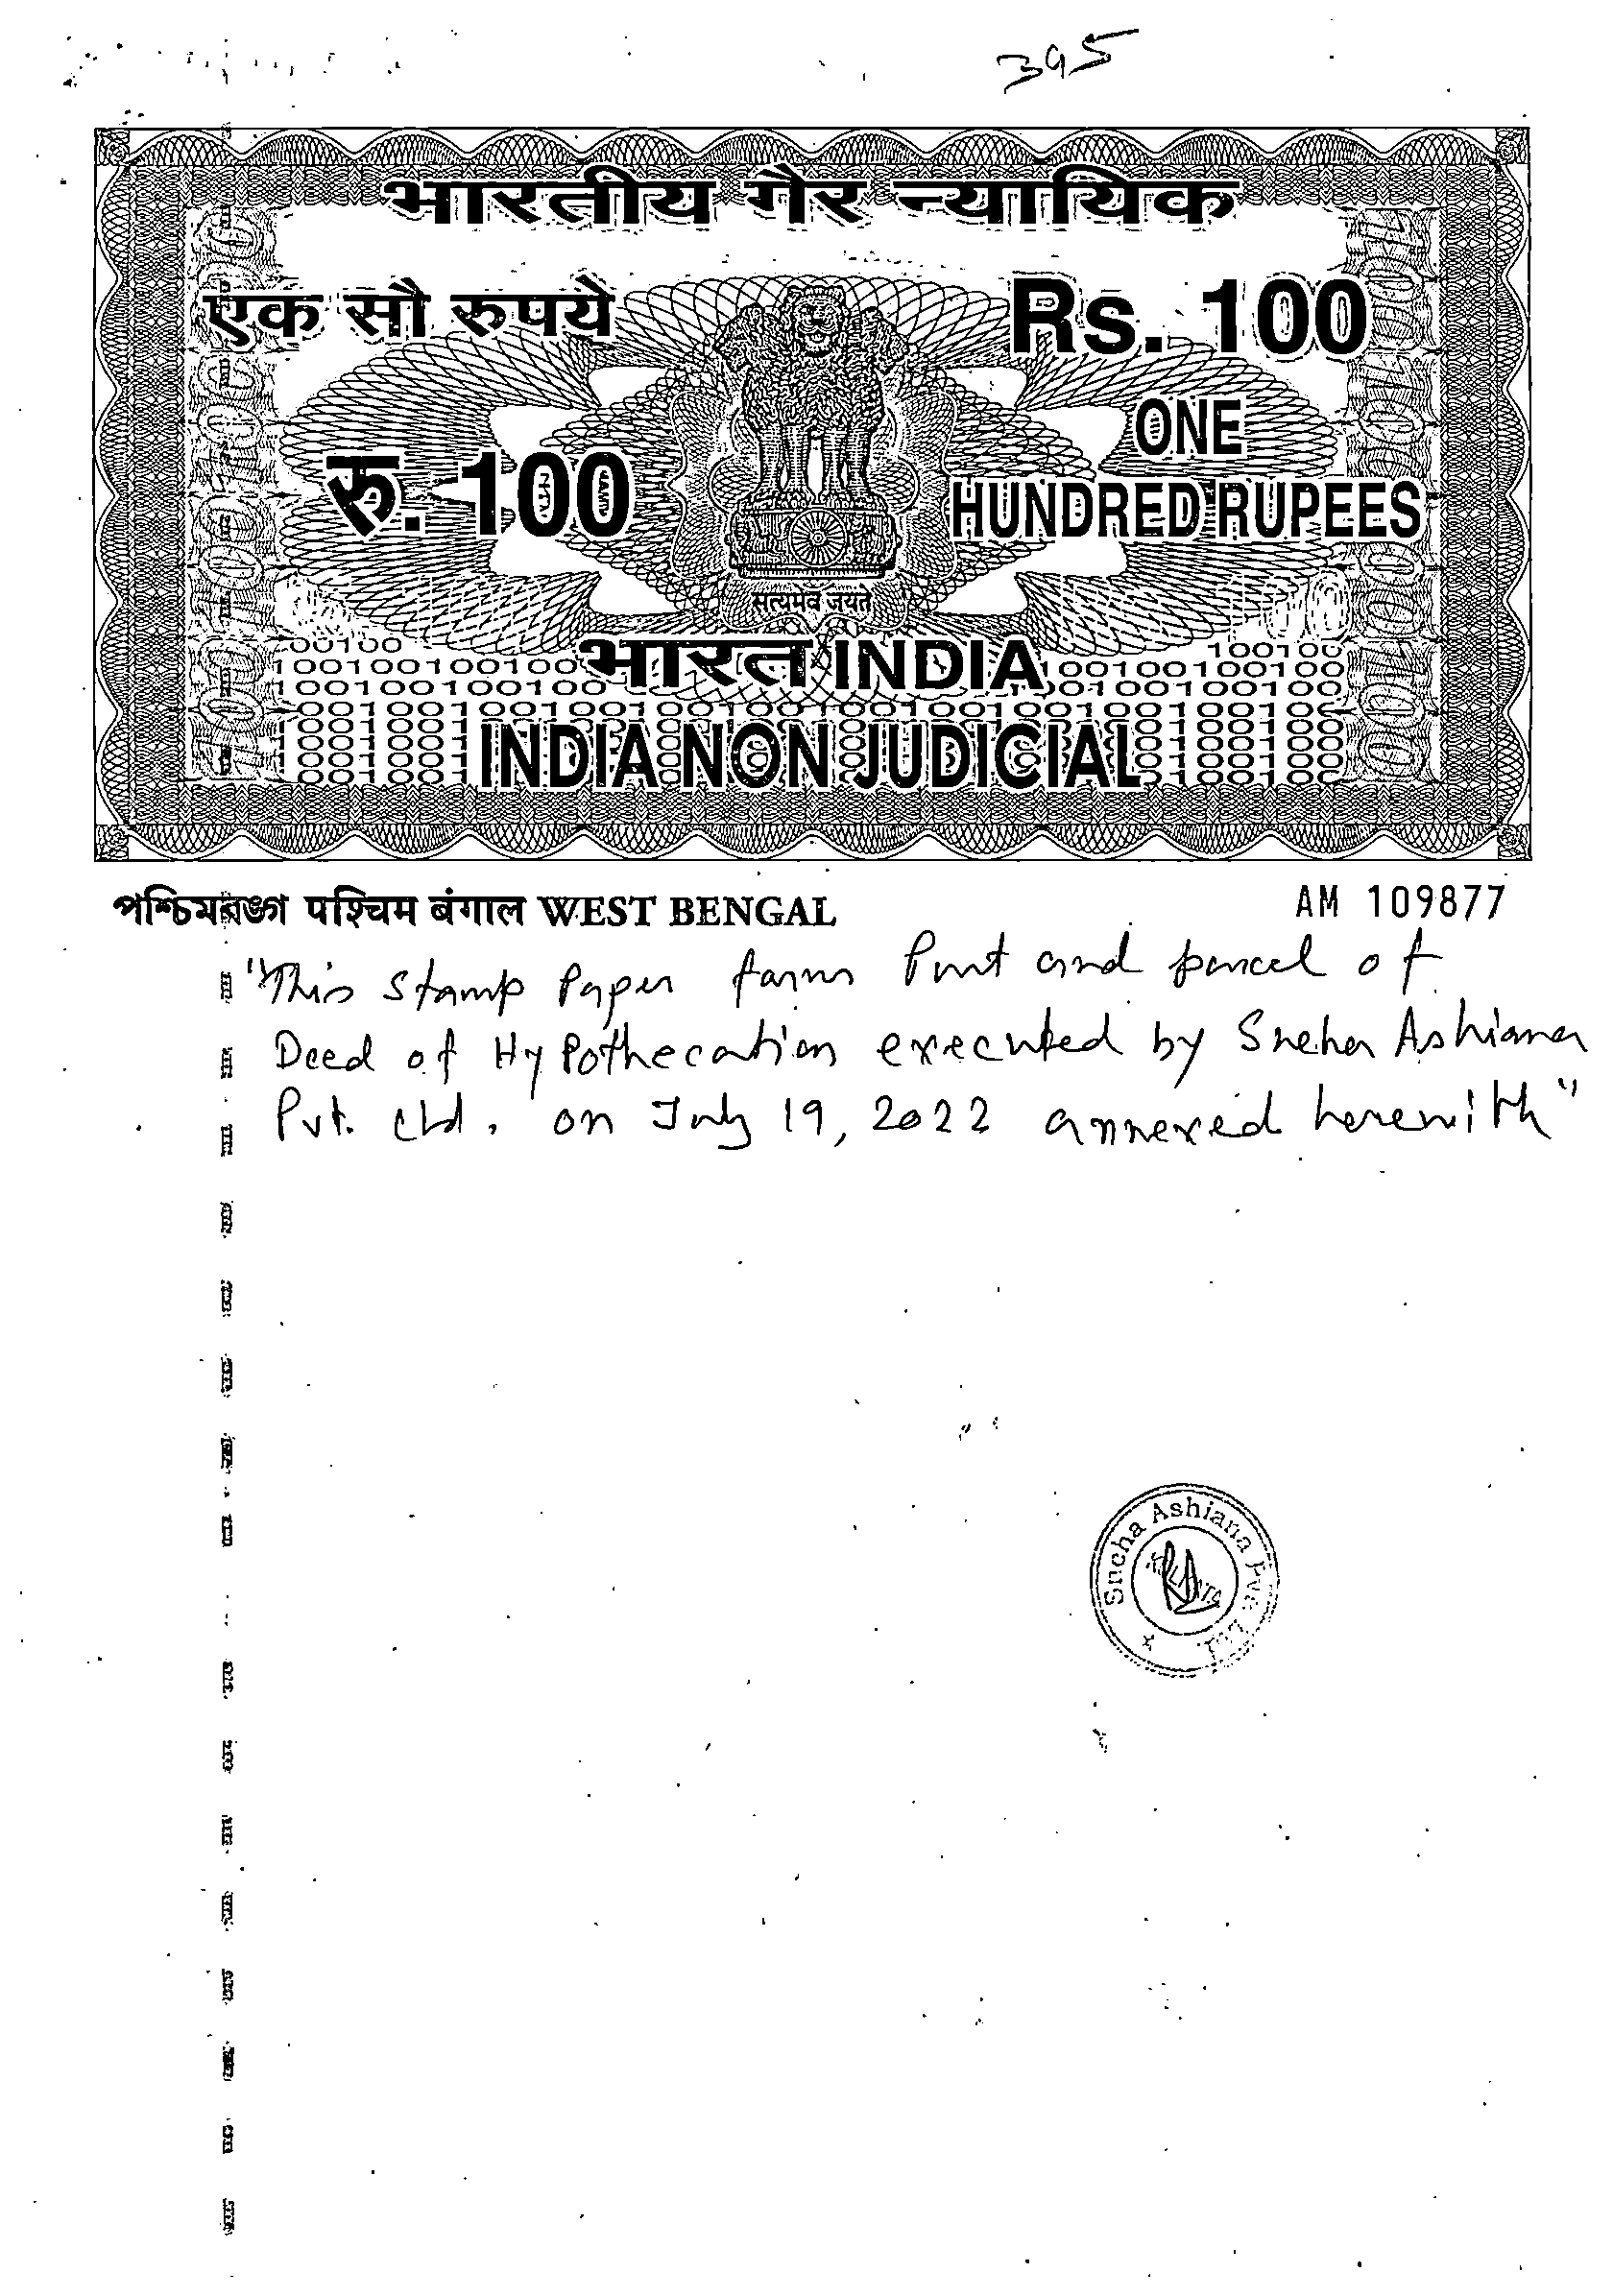 395
भारतीय गैर न्यायिक
एक सौ रुपये
Rs. 100
रु. 100
ONE
HUNDRED RUPEES
सत्यमेव जयते
भारत INDIA
INDIA NON JUDICIAL
পশ্চিমবঙ্গ पश्चिम बंगाल WEST BENGAL
AM 109877
"This Stamp Paper forms Part and parcel of
Deed of Hypothecation executed by Sneha Ashiana
Pvt. Ltd. on July 19, 2022 annexed herewith"
Sneha Ashiana Pvt. Ltd.